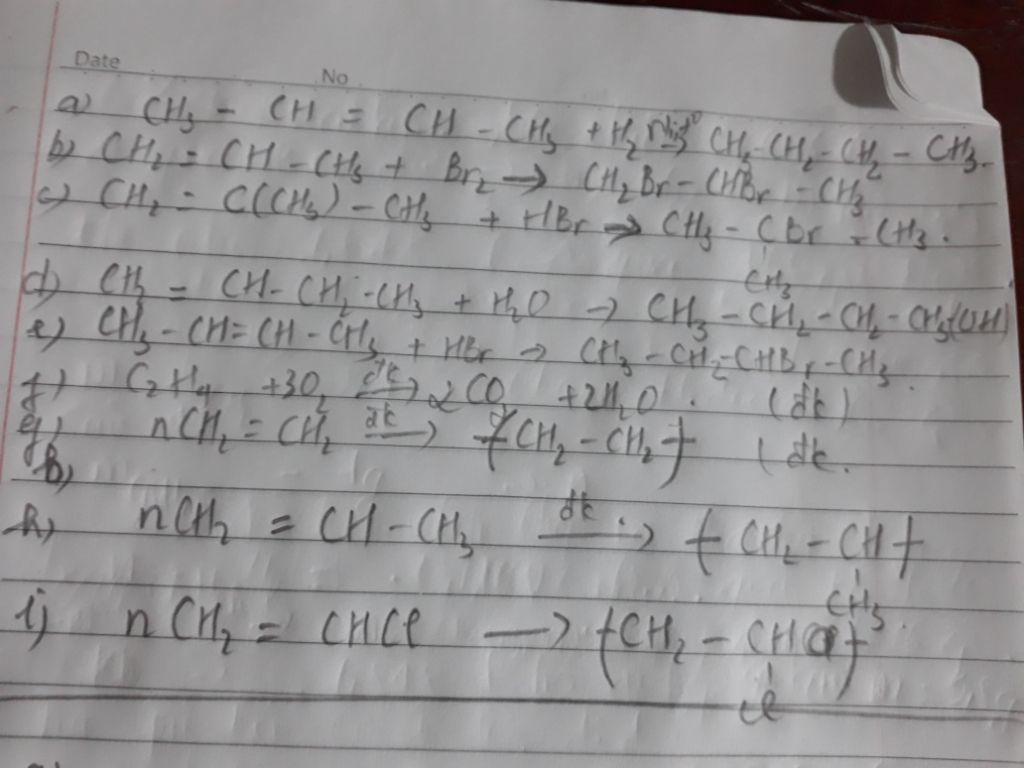 Date
No
a) CH₃ - CH = CH - CH₃ + H₂ Ni,t⁰→ CH₃-CH₂-CH₂ - CH₃.
b) CH₂ = CH - CH₃ + Br₂ → CH₂Br - CHBr - CH₃
c) CH₂ = C(CH₃) - CH₃ + HBr → CH₃ - CBr - CH₃.
CH₃
d) CH₂ = CH - CH₂ - CH₃ + H₂O → CH₃ - CH₂ - CH₂ - CH₃(OH)
e) CH₃ - CH = CH - CH₃ + HBr → CH₃ - CH₂ - CHBr - CH₃.
f) C₂H₄ + 3O₂ đk→ 2CO₂ + 2H₂O. (đk)
g) nCH₂ = CH₂ đk→ (CH₂ - CH₂) (đk.
h)
h) nCH₂ = CH - CH₃ đk→ (CH₂ - CH)
CH₃.
i) nCH₂ = CHCl → (CH₂ - CH)
Cl